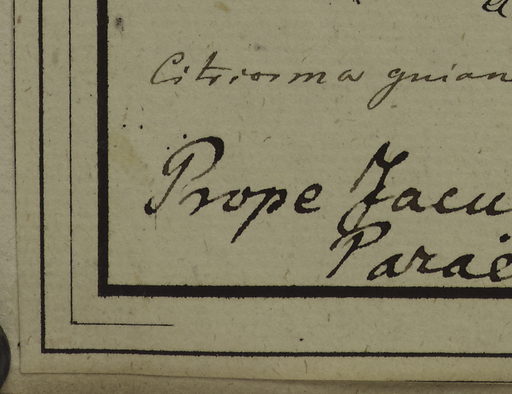 Citriosma guian
Prope Jacu
Paraë